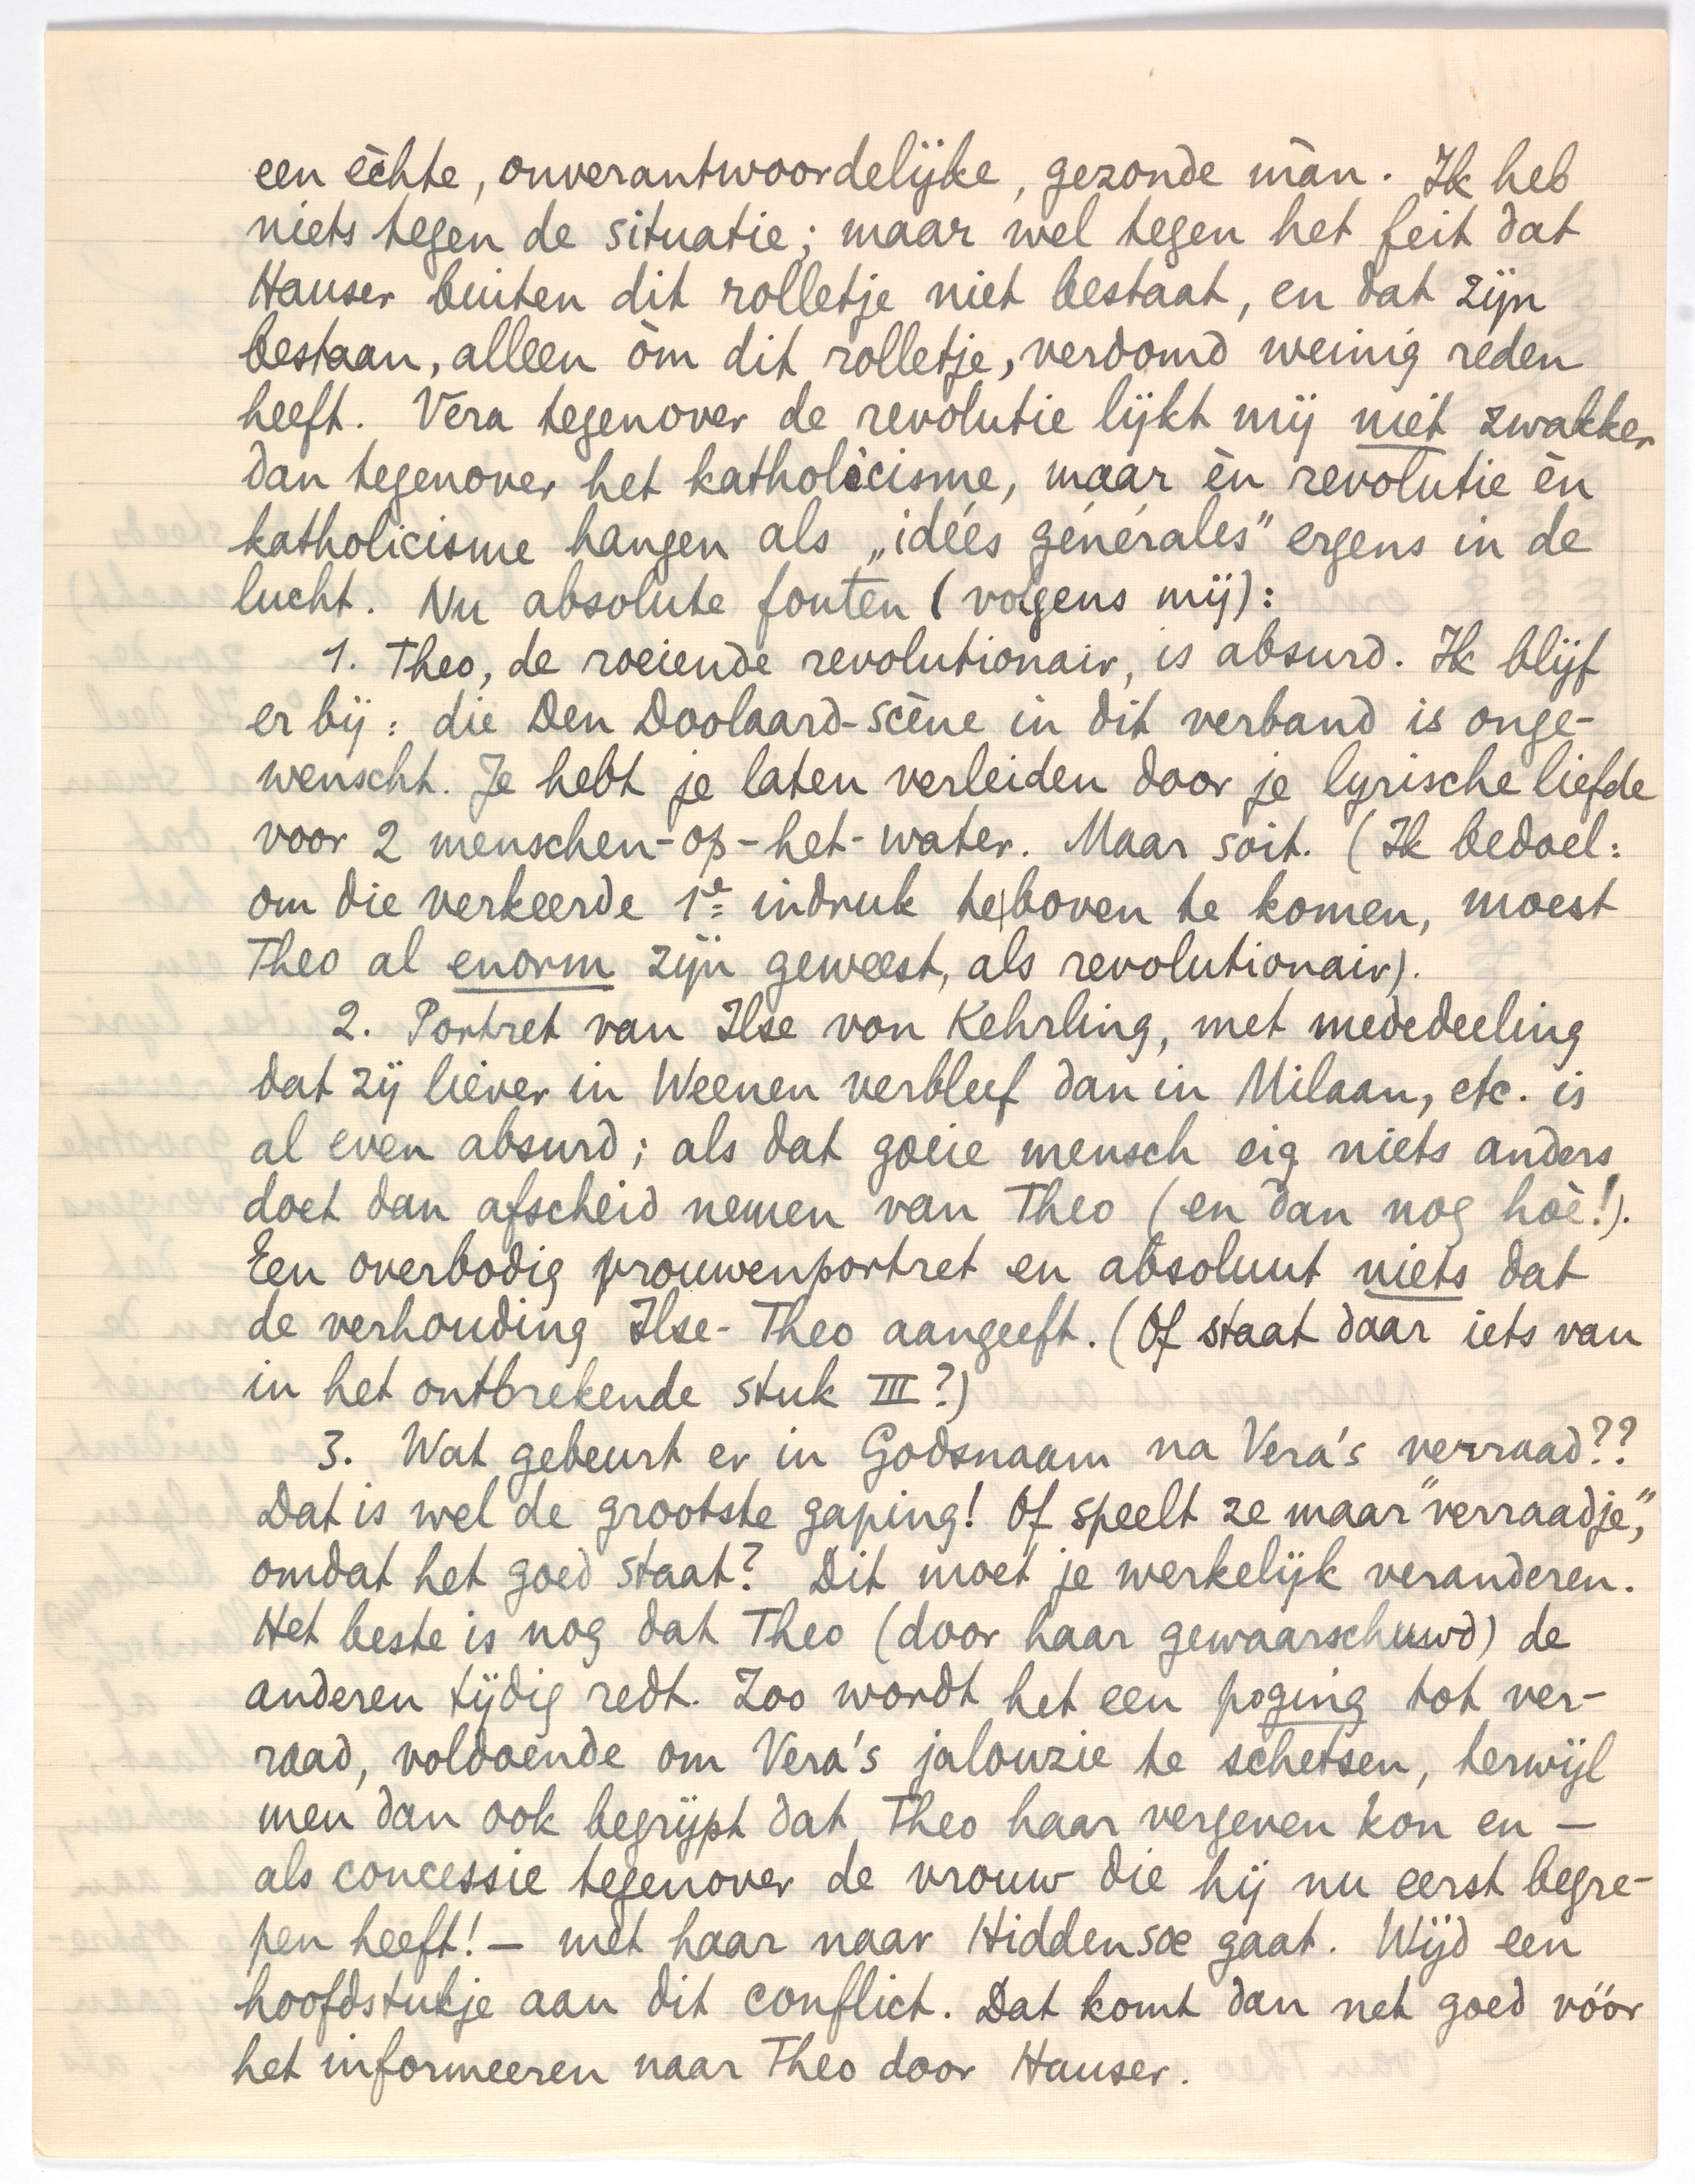 een èchte, onverantwoordelijke, gezonde màn. Ik heb
niets tegen de situatie; maar wel tegen het feit dat
Hauser buiten dit rolletje niet bestaat, en dat zijn
bestaan, alleen òm dit rolletje, verdomd weinig reden
heeft. Vera tegenover de revolutie lijkt mij niet zwakker
dan tegenover het katholicisme, maar èn revolutie èn
katholicisme hangen als „idées générales" ergens in de
lucht. Nu absolute fouten (volgens mij):
1. Theo, de roeiende revolutionair, is absurd. Ik blijf
er bij: die Den Doolaard-scène in dit verband is onge-
wenscht. Je hebt je laten verleiden door je lyrische liefde
voor 2 menschen-op-het-water. Maar soit. (Ik bedoel:
om die verkeerde 1e indruk te boven te komen, moest
Theo al enorm zijn geweest, als revolutionair).
2. Portret van Ilse von Kehrling, met mededeeling
dat zij liever in Weenen verbleef dan in Milaan, etc. is
al even absurd; als dat goeie mensch eig niets anders
doet dan afscheid nemen van Theo (en dan nog hoè!).
Een overbodig vrouwenportret en absoluut niets dat
de verhouding Ilse-Theo aangeeft. (Of staat daar iets van
in het ontbrekende stuk III?)
3. Wat gebeurt er in Godsnaam na Vera's verraad??
Dat is wel de grootste gaping! Of speelt ze maar "verraadje",
omdat het goed staat? Dit moet je werkelijk veranderen.
Het beste is nog dat Theo (door haar gewaarschuwd) de
anderen tijdig redt. Zoo wordt het een poging tot ver-
raad, voldoende om Vera's jalouzie te schetsen, terwijl
men dan ook begrijpt dat Theo haar vergeven kon en —
als concessie tegenover de vrouw die hij nu eerst begre-
pen heeft! — met haar naar Hiddensœ gaat. Wijd een
hoofdstukje aan dit conflict. Dat komt dan net goed vóór
het informeeren naar Theo door Hauser.